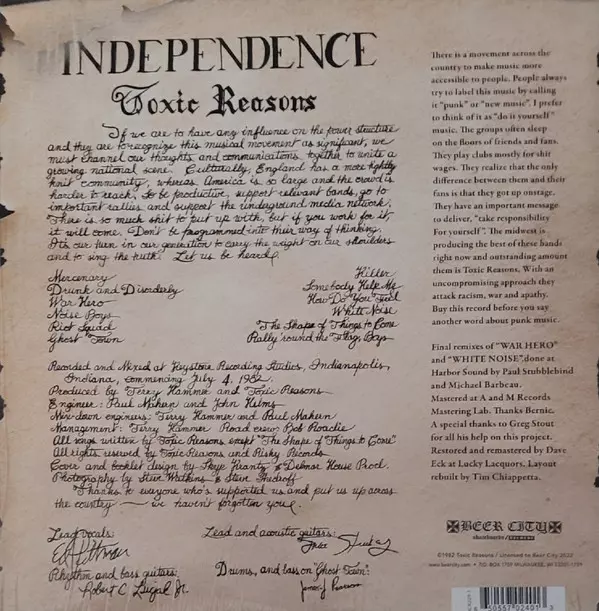 INDEPENDENCE
Toxic Reasons
If we are to have any influence on the power structure
and they are to recognize this musical movement as significant, we
must channel our thoughts and communications together to unite a
growing national scene. Culturally, England has a more tightly
knit community, whereas America is so large and the crowd is
harder to reach. To be productive, support relevant bands, go to
important rallies and support the underground media network.
There is so much shit to put up with, but if you work for it,
it will come. Don't be programmed into their way of thinking.
It's our turn in our generation to carry the weight on our shoulders
and to sing the truth! Let us be heard!
Mercenary
Drunk and Disorderly
War Hero
Noise Boys
Riot Squad
Ghost Town
Killer
Somebody Help Me
How Do You Feel
White Noise
The Shape of Things to Come
Rally 'round the Flag, Boys
Recorded and Mixed at Keystone Recording Studios, Indianapolis,
Indiana, commencing July 4, 1982
Produced by Terry Hammer and Toxic Reasons
Engineer: Paul Mahern and John Helms
Mix-down engineers: Terry Hammer and Paul Mahern
Management: Terry Hammer Road crew: Bob Roadie
All songs written by Toxic Reasons except "The Shape of Things to Come"
All rights reserved by Toxic Reasons and Risky Records
Cover and booklet design by Skye Krantz & Delmar House Prod.
Photography by Steve Watkins & Steve
Thanks to everyone who's supported us and put us up across
the country — we haven't forgotten you.
Lead vocals:
Ed Pittman
Rhythm and bass guitars:
Robert C. Jr.
Lead and acoustic guitars:
Drums, and bass on "Ghost Town":
There is a movement across the
country to make music more
accessible to people. People always
try to label this music by calling
it "punk" or "new music". I prefer
to think of it as "do it yourself"
music. The groups often sleep
on the floors of friends and fans.
They play clubs mostly for shit
wages. They realize that the only
difference between them and their
fans is that they got up onstage.
They have an important message
to deliver, "take responsibility
For yourself". The midwest is
producing the best of these bands
right now and outstanding amount
them is Toxic Reasons. With an
uncompromising approach they
attack racism, war and apathy.
Buy this record before you say
another word about punk music.
Final remixes of "WAR HERO"
and "WHITE NOISE", done at
Harbor Sound by Paul Stubblebind
and Michael Barbeau.
Mastered at A and M Records
Mastering Lab. Thanks Bernie.
A special thanks to Greg Stout
for all his help on this project.
Restored and remastered by Dave
Eck at Lucky Lacquors. Layout
rebuilt by Tim Chiappetta.
BEER CITY
skateboards RECORDS
©1982 Toxic Reasons / Licensed to Beer City
www.beercity.com • P.O. BOX MILWAUKEE, WI